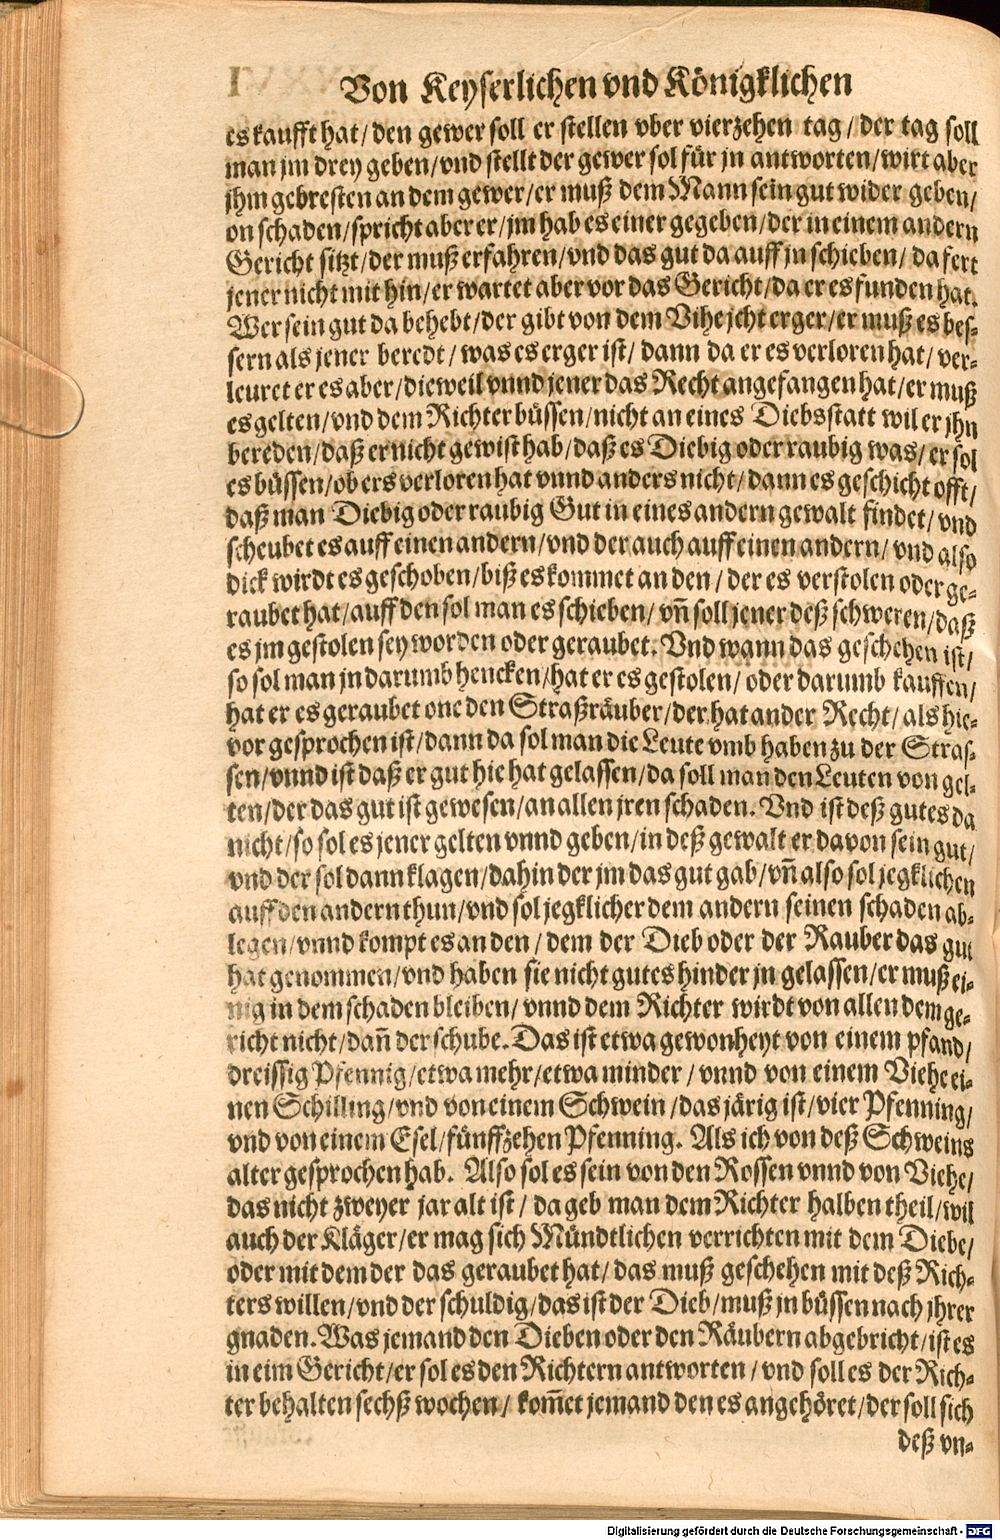 Von Keyserlichen vnd Königklichen
es kaufft hat/ den gewer soll er stellen vber vierzehen tag/ der tag soll
man jm drey geben/ vnd stellt der gewer sol für jn antworten/ wirt aber
jhm gebresten an dem gewer/ er muß dem Mann sein gut wider geben/
on schaden/ spricht aber er/ jm hab es einer gegeben/ der in einem andern
Gericht sitzt/ der muß erfahren/ vnd das gut da auff jn schieben/ da fert
jener nicht mit hin/ er wartet aber vor das Gericht/ da er es funden hat.
Wer sein gut da behebt/ der gibt von dem Vihe jcht erger/ er muß es bes-
sern als jener beredt/ was es erger ist/ dann da er es verloren hat/ ver-
leuret er es aber/ dieweil vnnd jener das Recht angefangen hat/ er muß
es gelten/ vnd dem Richter büssen/ nicht an eines Diebsstatt wil er jhn
bereden/ daß er nicht gewist hab/ daß es Diebig oder raubig was/ er sol
es büssen/ ob ers verloren hat vnnd anders nicht/ dann es geschicht offt/
daß man Diebig oder raubig Gut in eines andern gewalt findet/ vnd
scheubet es auff einen andern/ vnd der auch auff einen andern/ vnd also
dick wirdt es geschoben/ biß es kommet an den/ der es verstolen oder ge-
raubet hat/ auff den sol man es schieben/ vñ soll jener deß schweren/ daß
es jm gestolen sey worden oder geraubet. Vnd wann das geschehen ist/
so sol man jn darumb hencken/ hat er es gestolen/ oder darumb kauffen/
hat er es geraubet one den Straßräuber/ der hat ander Recht/ als hie-
vor gesprochen ist/ dann da sol man die Leute vmb haben zu der Stras-
sen/ vnnd ist daß er gut hie hat gelassen/ da soll man den Leuten von gel-
ten/ der das gut ist gewesen/ an allen jren schaden. Vnd ist deß gutes da
nicht/ so sol es jener gelten vnnd geben/ in deß gewalt er davon sein gut/
vnd der sol dann klagen/ dahin der jm das gut gab/ vñ also sol jegklichen
auff den andern thun/ vnd sol jegklicher dem andern seinen schaden ab-
legen/ vnnd kompt es an den/ dem der Dieb oder der Rauber das gut
hat genommen/ vnd haben sie nicht gutes hinder jn gelassen/ er muß ei-
nig in dem schaden bleiben/ vnnd dem Richter wirdt von allen dem ge-
richt nicht/ dañ der schube. Das ist etwa gewonheyt von einem pfand/
dreissig Pfennig/ etwa mehr/ etwa minder/ vnnd von einem Viehe ei-
nen Schilling/ vnd von einem Schwein/ das järig ist/ vier Pfenning/
vnd von einem Esel/ fünffzehen Pfenning. Als ich von deß Schweins
alter gesprochen hab. Also sol es sein von den Rossen vnnd von Viehe/
das nicht zweyer jar alt ist/ da geb man dem Richter halben theil/ wil
auch der Kläger/ er mag sich Mündtlichen verrichten mit dem Diebe/
oder mit dem der das geraubet hat/ das muß geschehen mit deß Rich-
ters willen/ vnd der schuldig/ das ist der Dieb/ muß jn büssen nach jhrer
gnaden. Was jemand den Dieben oder den Räubern abgebricht/ ist es
in eim Gericht/ er sol es den Richtern antworten/ vnd soll es der Rich-
ter behalten sechß wochen/ kom̃et jemand den es angehöret/ der soll sich
deß vn-
Digitalisierung gefördert durch die Deutsche Forschungsgemeinschaft - DFG